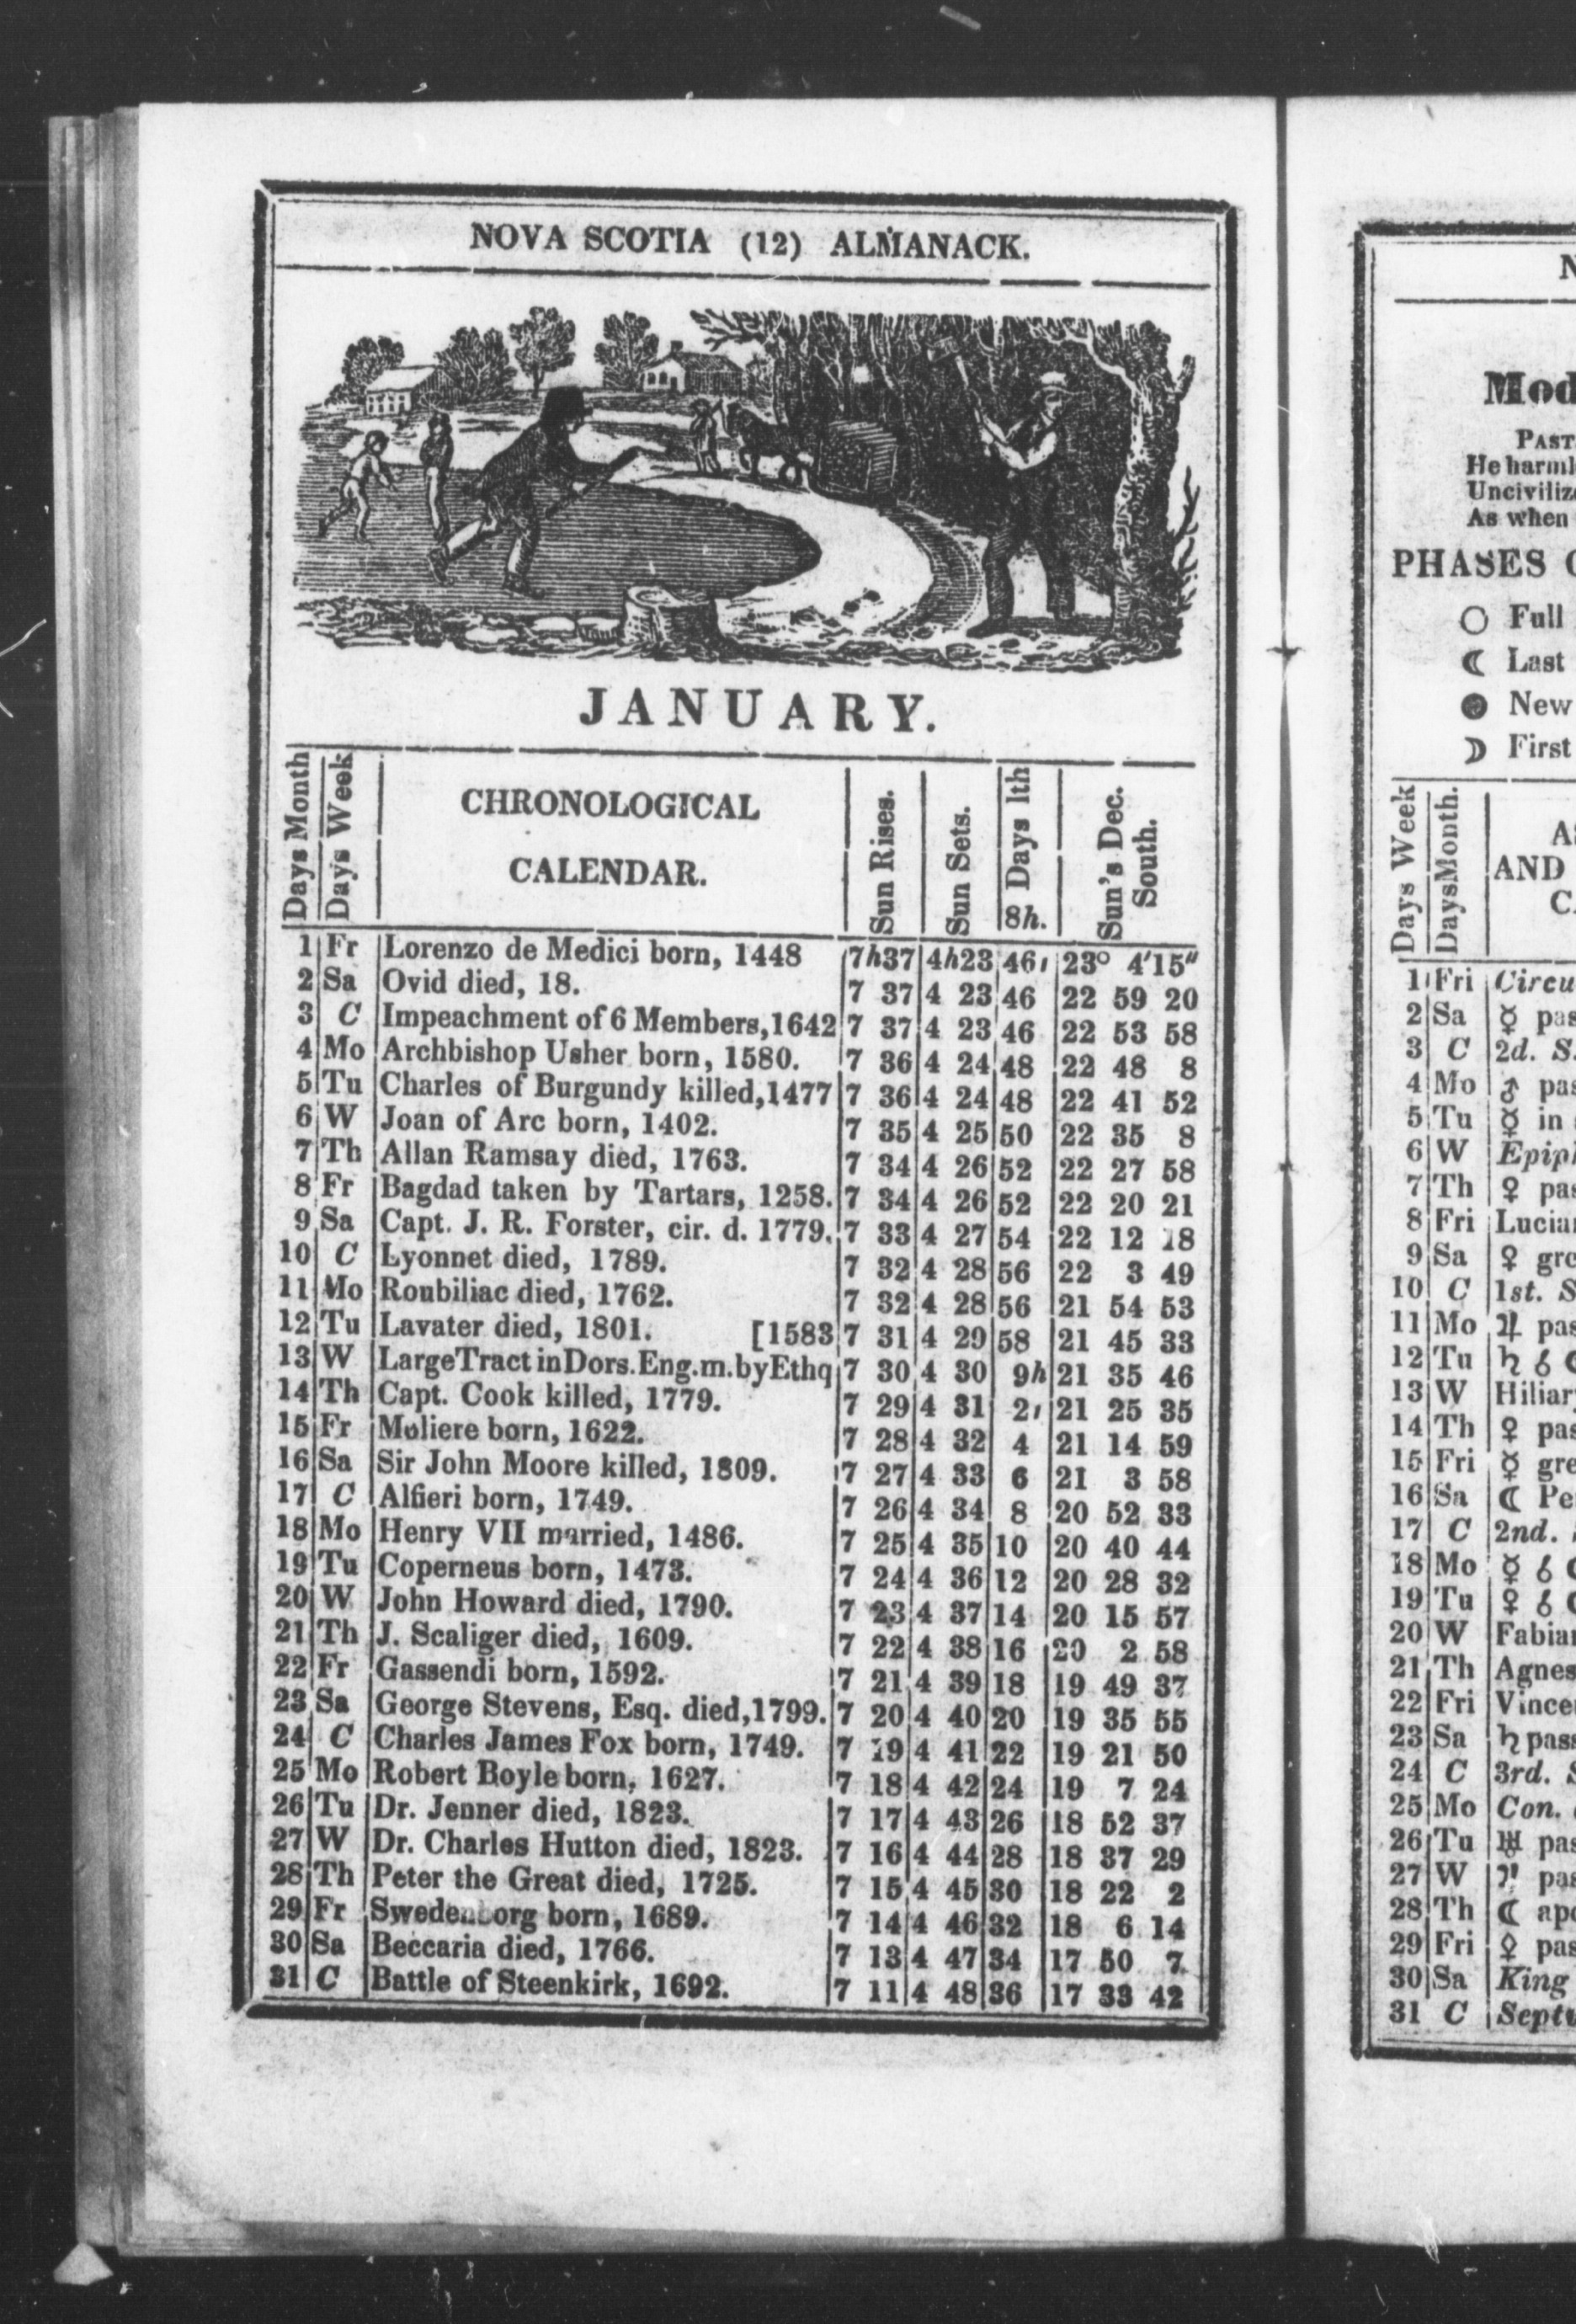 NOVA SCOTIA (12) ALMANACK.
JANUARY.
Days Month
Days Week
CHRONOLOGICAL
CALENDAR.
Sun Rises.
Sun Sets.
Days lth
8h.
Sun's Dec.
South.
1 Fr Lorenzo de Medici born, 1448 7h37 4h23 46, 23° 4'15"
2 Sa Ovid died, 18. 7 37 4 23 46 22 59 20
3 C Impeachment of 6 Members,1642 7 37 4 23 46 22 53 58
4 Mo Archbishop Usher born, 1580. 7 36 4 24 48 22 48 8
5 Tu Charles of Burgundy killed,1477 7 36 4 24 48 22 41 52
6 W Joan of Arc born, 1402. 7 35 4 25 50 22 35 8
7 Th Allan Ramsay died, 1763. 7 34 4 26 52 22 27 58
8 Fr Bagdad taken by Tartars, 1258. 7 34 4 26 52 22 20 21
9 Sa Capt. J. R. Forster, cir. d. 1779. 7 33 4 27 54 22 12 18
10 C Lyonnet died, 1789. 7 32 4 28 56 22 3 49
11 Mo Roubiliac died, 1762. 7 32 4 28 56 21 54 53
12 Tu Lavater died, 1801. [1583 7 31 4 29 58 21 45 33
13 W LargeTractinDors.Eng.m.byEthq 7 30 4 30 9h 21 35 46
14 Th Capt. Cook killed, 1779. 7 29 4 31 2, 21 25 35
15 Fr Moliere born, 1622. 7 28 4 32 4 21 14 59
16 Sa Sir John Moore killed, 1809. 7 27 4 33 6 21 3 58
17 C Alfieri born, 1749. 7 26 4 34 8 20 52 33
18 Mo Henry VII married, 1486. 7 25 4 35 10 20 40 44
19 Tu Coperneus born, 1473. 7 24 4 36 12 20 28 32
20 W John Howard died, 1790. 7 23 4 37 14 20 15 57
21 Th J. Scaliger died, 1609. 7 22 4 38 16 20 2 58
22 Fr Gassendi born, 1592. 7 21 4 39 18 19 49 37
23 Sa George Stevens, Esq. died,1799. 7 20 4 40 20 19 35 55
24 C Charles James Fox born, 1749. 7 19 4 41 22 19 21 50
25 Mo Robert Boyle born, 1627. 7 18 4 42 24 19 7 24
26 Tu Dr. Jenner died, 1823. 7 17 4 43 26 18 52 37
27 W Dr. Charles Hutton died, 1823. 7 16 4 44 28 18 37 29
28 Th Peter the Great died, 1725. 7 15 4 45 30 18 22 2
29 Fr Swedenborg born, 1689. 7 14 4 46 32 18 6 14
30 Sa Beccaria died, 1766. 7 13 4 47 34 17 50 7
31 C Battle of Steenkirk, 1692. 7 11 4 48 36 17 33 42
N
Mod
PAST
He harml
Uncivilize
As when
PHASES
○ Full
☾ Last
● New
☽ First
Days Week
Days Month.
AND
1 Fri Circu
2 Sa ☿ pas
3 C 2d. S.
4 Mo ♂ pas
5 Tu ☿ in
6 W Epiph
7 Th ♀ pas
8 Fri Lucian
9 Sa ♀ gre
10 C 1st. S
11 Mo ♃ pas
12 Tu ♄ ☌
13 W Hiliary
14 Th ♀ pas
15 Fri ☿ gre
16 Sa ☾ Per
17 C 2nd.
18 Mo ☿ ☌
19 Tu ♀ ☌
20 W Fabian
21 Th Agnes
22 Fri Vincen
23 Sa ♄ pass
24 C 3rd. S
25 Mo Con.
26 Tu ♅ pas
27 W ♃ pas
28 Th ☾ apo
29 Fri ♀ pas
30 Sa King
31 C Septu